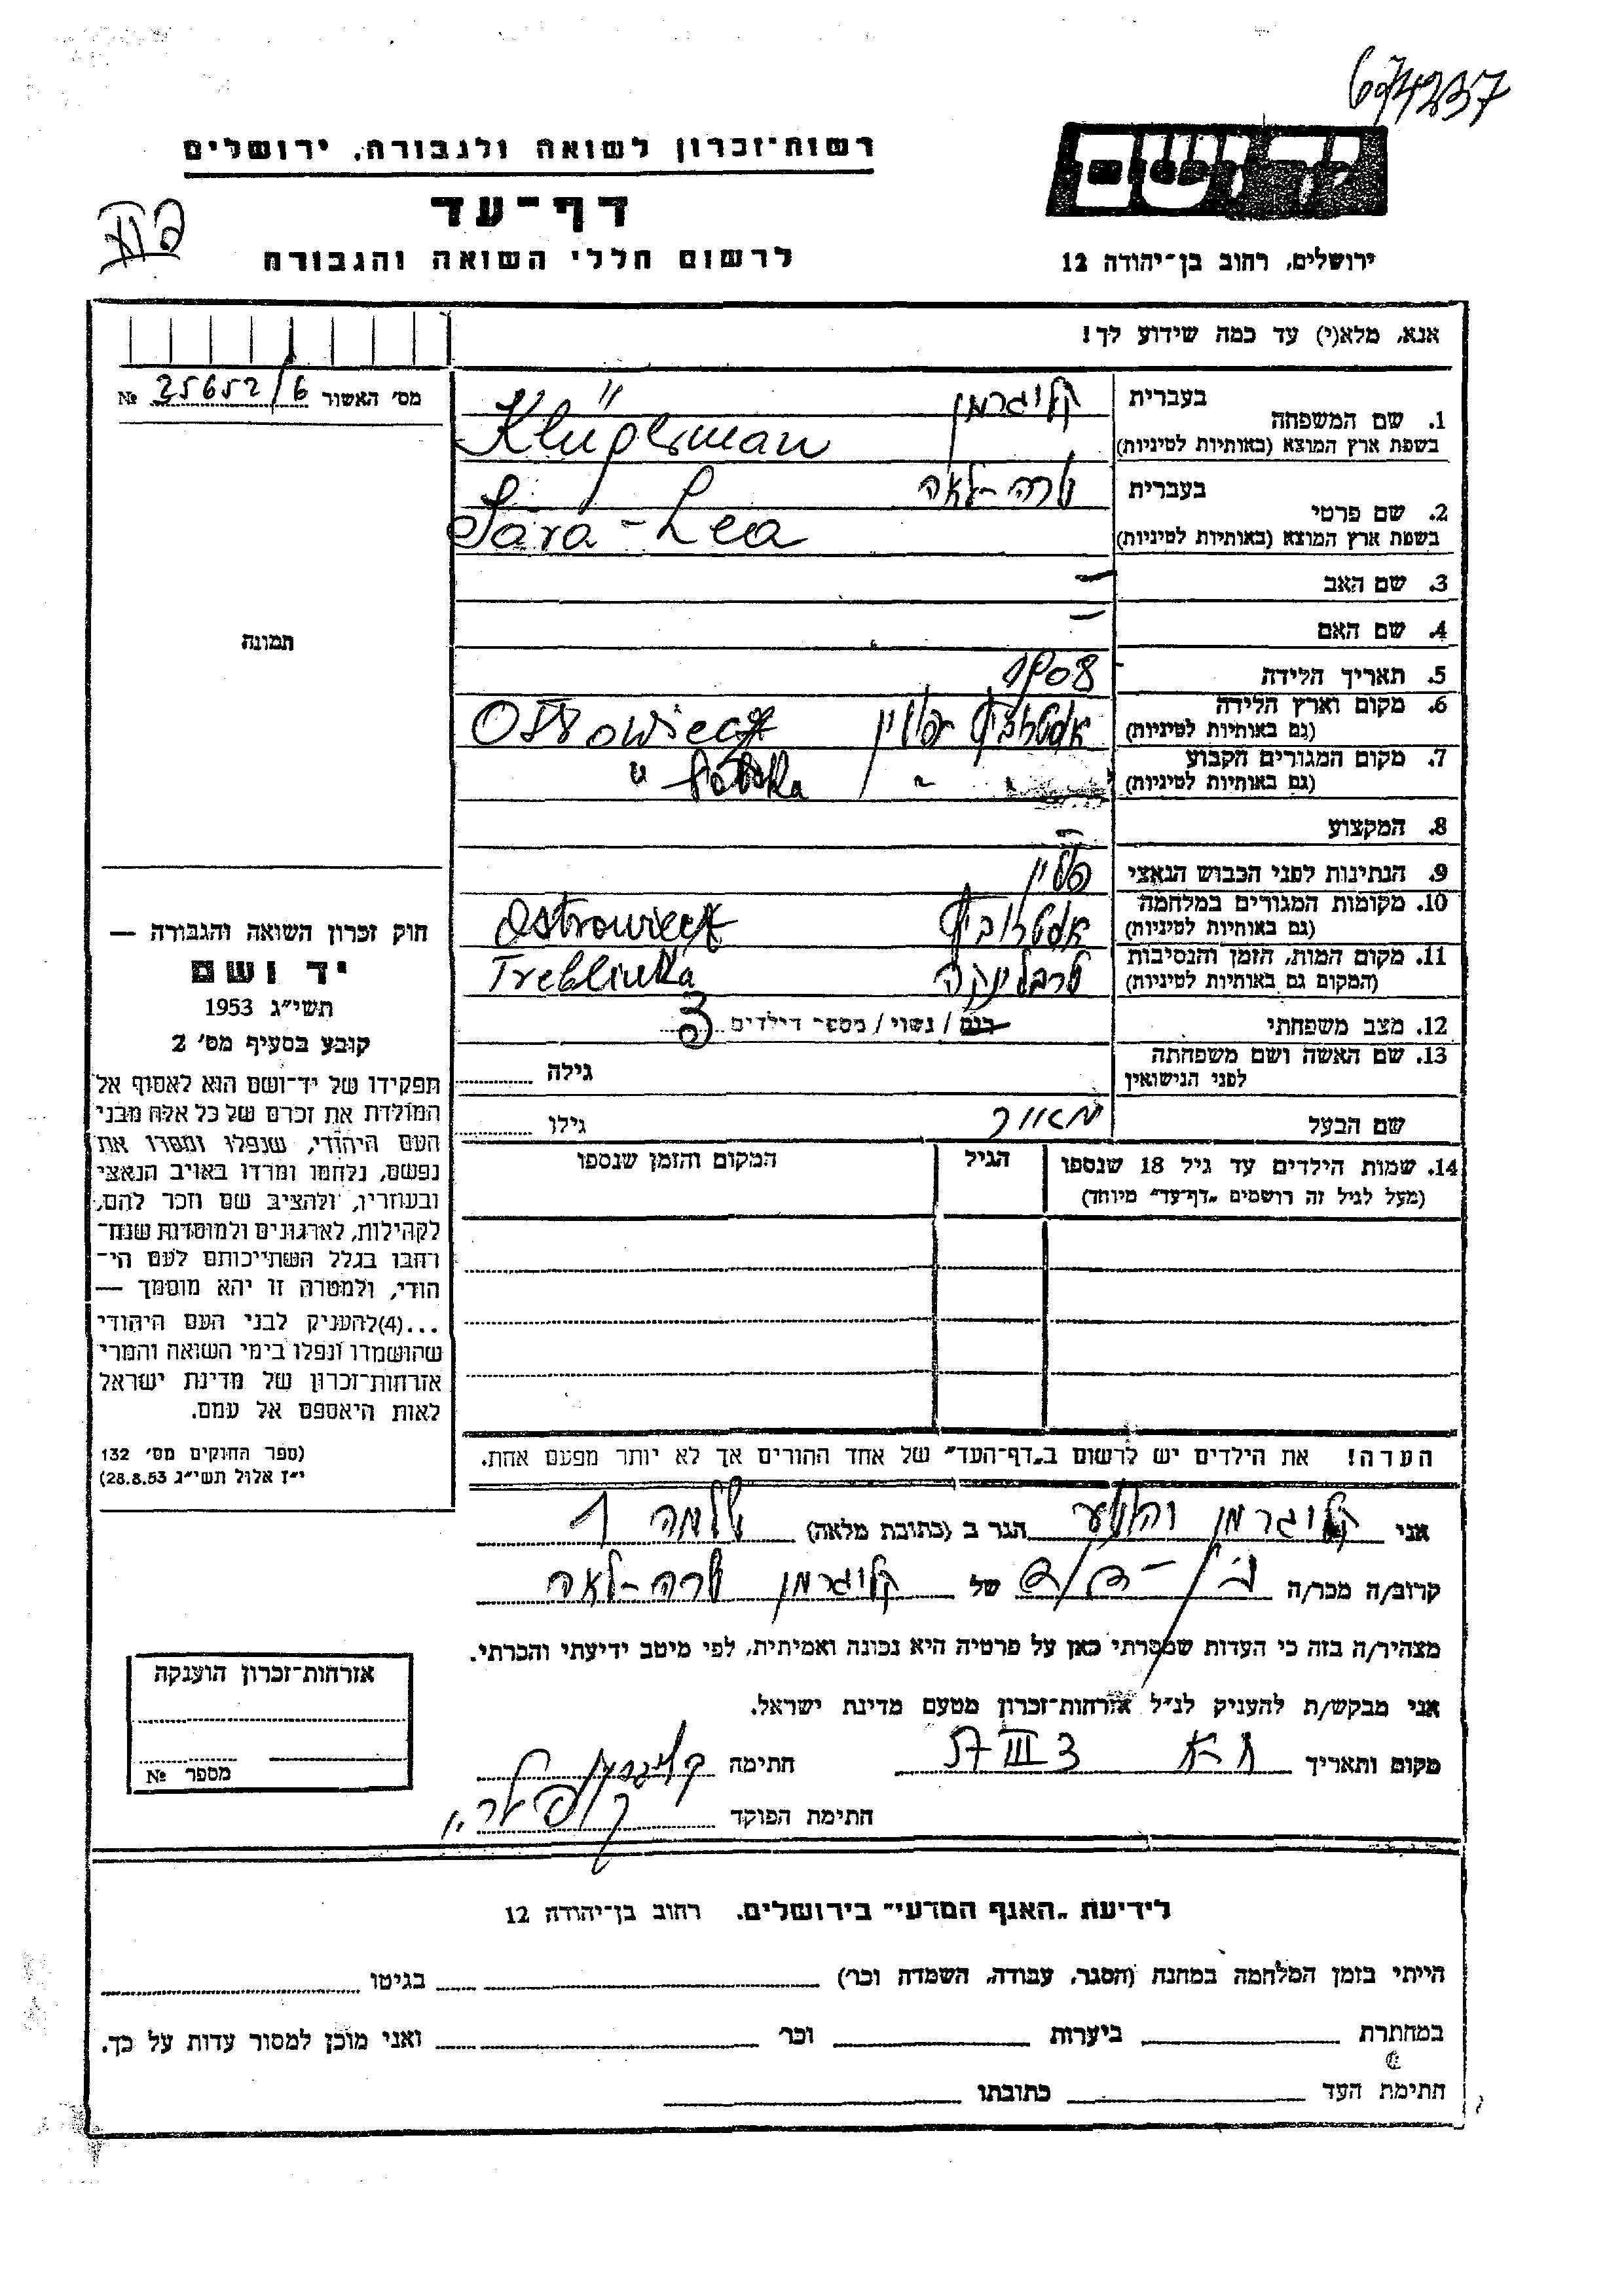 674237
רשות־זכרון לשואה ולגבורה, ירושלים
יד ושם
דף־עד
לרשום חללי השואה והגבורה
ירושלים, רחוב בן־יהודה 12
אנא, מלא(י) עד כמה שידוע לך!
מס׳ האשור 25652/6 №
1. שם המשפחה בעברית קליגרמן
בשפת ארץ המוצא (באותיות לטיניות) Klügerman
2. שם פרטי בעברית שרה-לאה
בשפת ארץ המוצא (באותיות לטיניות) Sara-Lea
3. שם האב —
4. שם האם —
5. תאריך הלידה 1908
6. מקום וארץ הלידה (גם באותיות לטיניות) אוסטרוביץ פולין Ostrowiecz
7. מקום המגורים הקבוע (גם באותיות לטיניות) " " " Polska
8. המקצוע —
9. הנתינות לפני הכבוש הנאצי פולין
10. מקומות המגורים במלחמה (גם באותיות לטיניות) אוסטרוביץ Ostrowiecz
11. מקום המות, הזמן והנסיבות (המקום גם באותיות לטיניות) טרבלינקה Treblinka
12. מצב משפחתי רווק / נשוי / מספר הילדים 3
13. שם האשה ושם משפחתה לפני הנישואין גילה
שם הבעל מאיר גילו
14. שמות הילדים עד גיל 18 שנספו (מעל לגיל זה רושמים „דף־עד״ מיוחד) הגיל המקום והזמן שנספו
הערה! את הילדים יש לרשום ב„דף־העד״ של אחד ההורים אך לא יותר מפעם אחת.
תמונה
חוק זכרון השואה והגבורה —
יד ושם
תשי״ג 1953
קובע בסעיף מס׳ 2
תפקידו של יד־ושם הוא לאסוף אל
המולדת את זכרם של כל אלה מבני
העם היהודי, שנפלו ומסרו את
נפשם, נלחמו ומרדו באויב הנאצי
ובעוזריו, ולהציב שם וזכר להם,
לקהילות, לארגונים ולמוסדות שנח־
רבו בגלל השתייכותם לעם הי־
הודי, ולמטרה זו יהא מוסמך —
...(4)להעניק לבני העם היהודי
שהושמדו ונפלו בימי השואה והמרי
אזרחות־זכרון של מדינת ישראל
לאות היאספם אל עמם.
(ספר החוקים מס׳ 132
י״ז אלול תשי״ג 28.8.53)
אני קליגרמן הגר ב (כתובת מלאה) שלמה 1
קרוב/ה מכר/ה של קליגרמן שרה-לאה
מצהיר/ה בזה כי העדות שמסרתי כאן על פרטיה היא נכונה ואמיתית, לפי מיטב ידיעתי והכרתי.
אני מבקש/ת להעניק לנ״ל אזרחות־זכרון מטעם מדינת ישראל.
מקום ותאריך ת-א 3 III 57 חתימה
חתימת הפוקד
אזרחות־זכרון הוענקה
מספר №
לידיעת „האגף המדעי״ בירושלים, רחוב בן־יהודה 12
הייתי בזמן המלחמה במחנה (הסגר, עבודה, השמדה וכו׳) בגיטו
במחתרת ביערות וכו׳ ואני מוכן למסור עדות על כך.
חתימת העד כתובתו